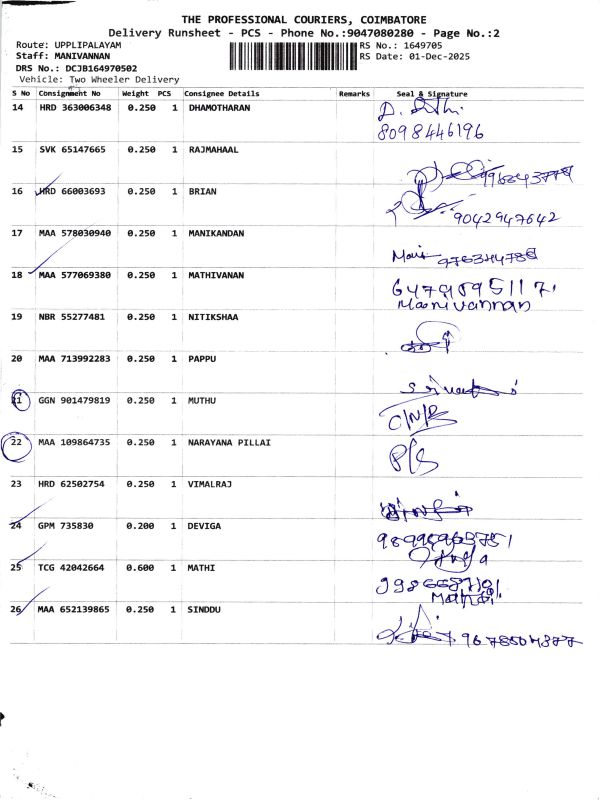 THE PROFESSIONAL COURIERS, COIMBATORE
Delivery Runsheet - PCS - Phone No.:9047080280 - Page No.:2
Route: UPPLIPALAYAM
RS No.: 1649705
Staff: MANIVANNAN
RS Date: 01-Dec-2025
DRS No.: DCJB164970502
Vehicle: Two Wheeler Delivery
S No Consignment No Weight PCS Consignee Details Remarks Seal & Signature
14 HRD 363006348 0.250 1 DHAMOTHARAN
8098446196
15 SVK 65147665 0.250 1 RAJMAHAAL
16 HRD 66003693 0.250 1 BRIAN
9042947642
17 MAA 578030940 0.250 1 MANIKANDAN
Mani
18 MAA 577069380 0.250 1 MATHIVANAN
Manivannan
19 NBR 55277481 0.250 1 NITIKSHAA
20 MAA 713992283 0.250 1 PAPPU
21 GGN 901479819 0.250 1 MUTHU
C/N/R
22 MAA 109864735 0.250 1 NARAYANA PILLAI
P/S
23 HRD 62502754 0.250 1 VIMALRAJ
24 GPM 735830 0.200 1 DEVIGA
25 TCG 42042664 0.600 1 MATHI
Mathi
26 MAA 652139865 0.250 1 SINDDU